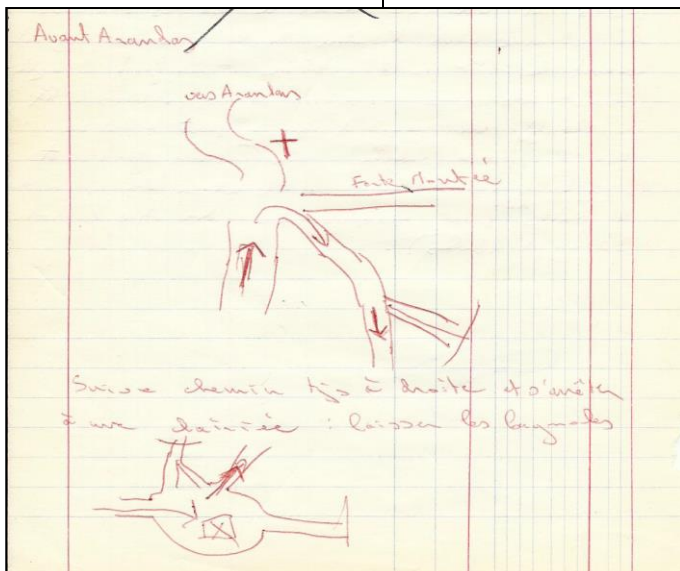 Avant Arandas
vers Arandas
Forte Montée
Suivre chemin tjs à droite et s'arrêter
à une clairière : laisser les bagnoles